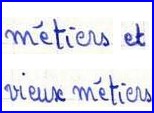 métiers et
vieux métiers